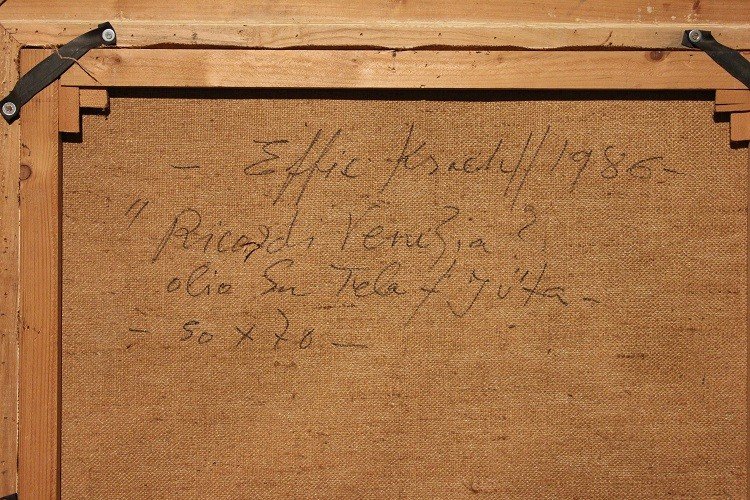 - Effie 1986-
"Ricordi Venezia"
olio su Tela + Juta -
- 50 x 70 -